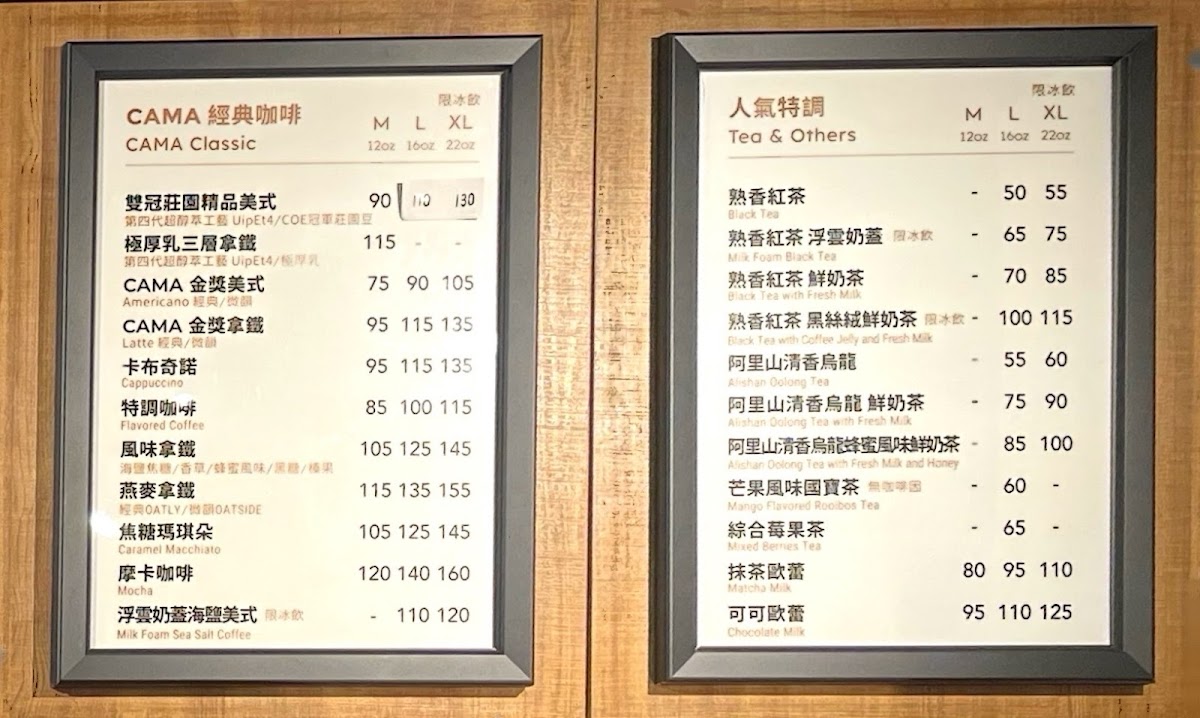 CAMA 經典咖啡
CAMA Classic
限冰飲
M L XL
12oz 16oz 22oz
雙冠莊園精品美式 90 110 130
第四代超醇萃工藝 UipEt4/COE冠軍莊園豆
極厚乳三層拿鐵 115 - -
第四代超醇萃工藝 UipEt4/極厚乳
CAMA 金獎美式 75 90 105
Americano 經典/微韻
CAMA 金獎拿鐵 95 115 135
Latte 經典/微韻
卡布奇諾 95 115 135
Cappuccino
特調咖啡 85 100 115
Flavored Coffee
風味拿鐵 105 125 145
海鹽焦糖/香草/蜂蜜風味/黑糖/榛果
燕麥拿鐵 115 135 155
經典OATLY/微韻OATSIDE
焦糖瑪琪朵 105 125 145
Caramel Macchiato
摩卡咖啡 120 140 160
Mocha
浮雲奶蓋海鹽美式 限冰飲 - 110 120
Milk Foam Sea Salt Coffee
人氣特調
Tea & Others
限冰飲
M L XL
12oz 16oz 22oz
熟香紅茶 - 50 55
Black Tea
熟香紅茶 浮雲奶蓋 限冰飲 - 65 75
Milk Foam Black Tea
熟香紅茶 鮮奶茶 - 70 85
Black Tea with Fresh Milk
熟香紅茶 黑絲絨鮮奶茶 限冰飲 - 100 115
Black Tea with Coffee Jelly and Fresh Milk
阿里山清香烏龍 - 55 60
Alishan Oolong Tea
阿里山清香烏龍 鮮奶茶 - 75 90
Alishan Oolong Tea with Fresh Milk
阿里山清香烏龍蜂蜜風味鮮奶茶 - 85 100
Alishan Oolong Tea with Fresh Milk and Honey
芒果風味國寶茶 無咖啡因 - 60 -
Mango Flavored Rooibos Tea
綜合莓果茶 - 65 -
Mixed Berries Tea
抹茶歐蕾 80 95 110
Matcha Milk
可可歐蕾 95 110 125
Chocolate Milk